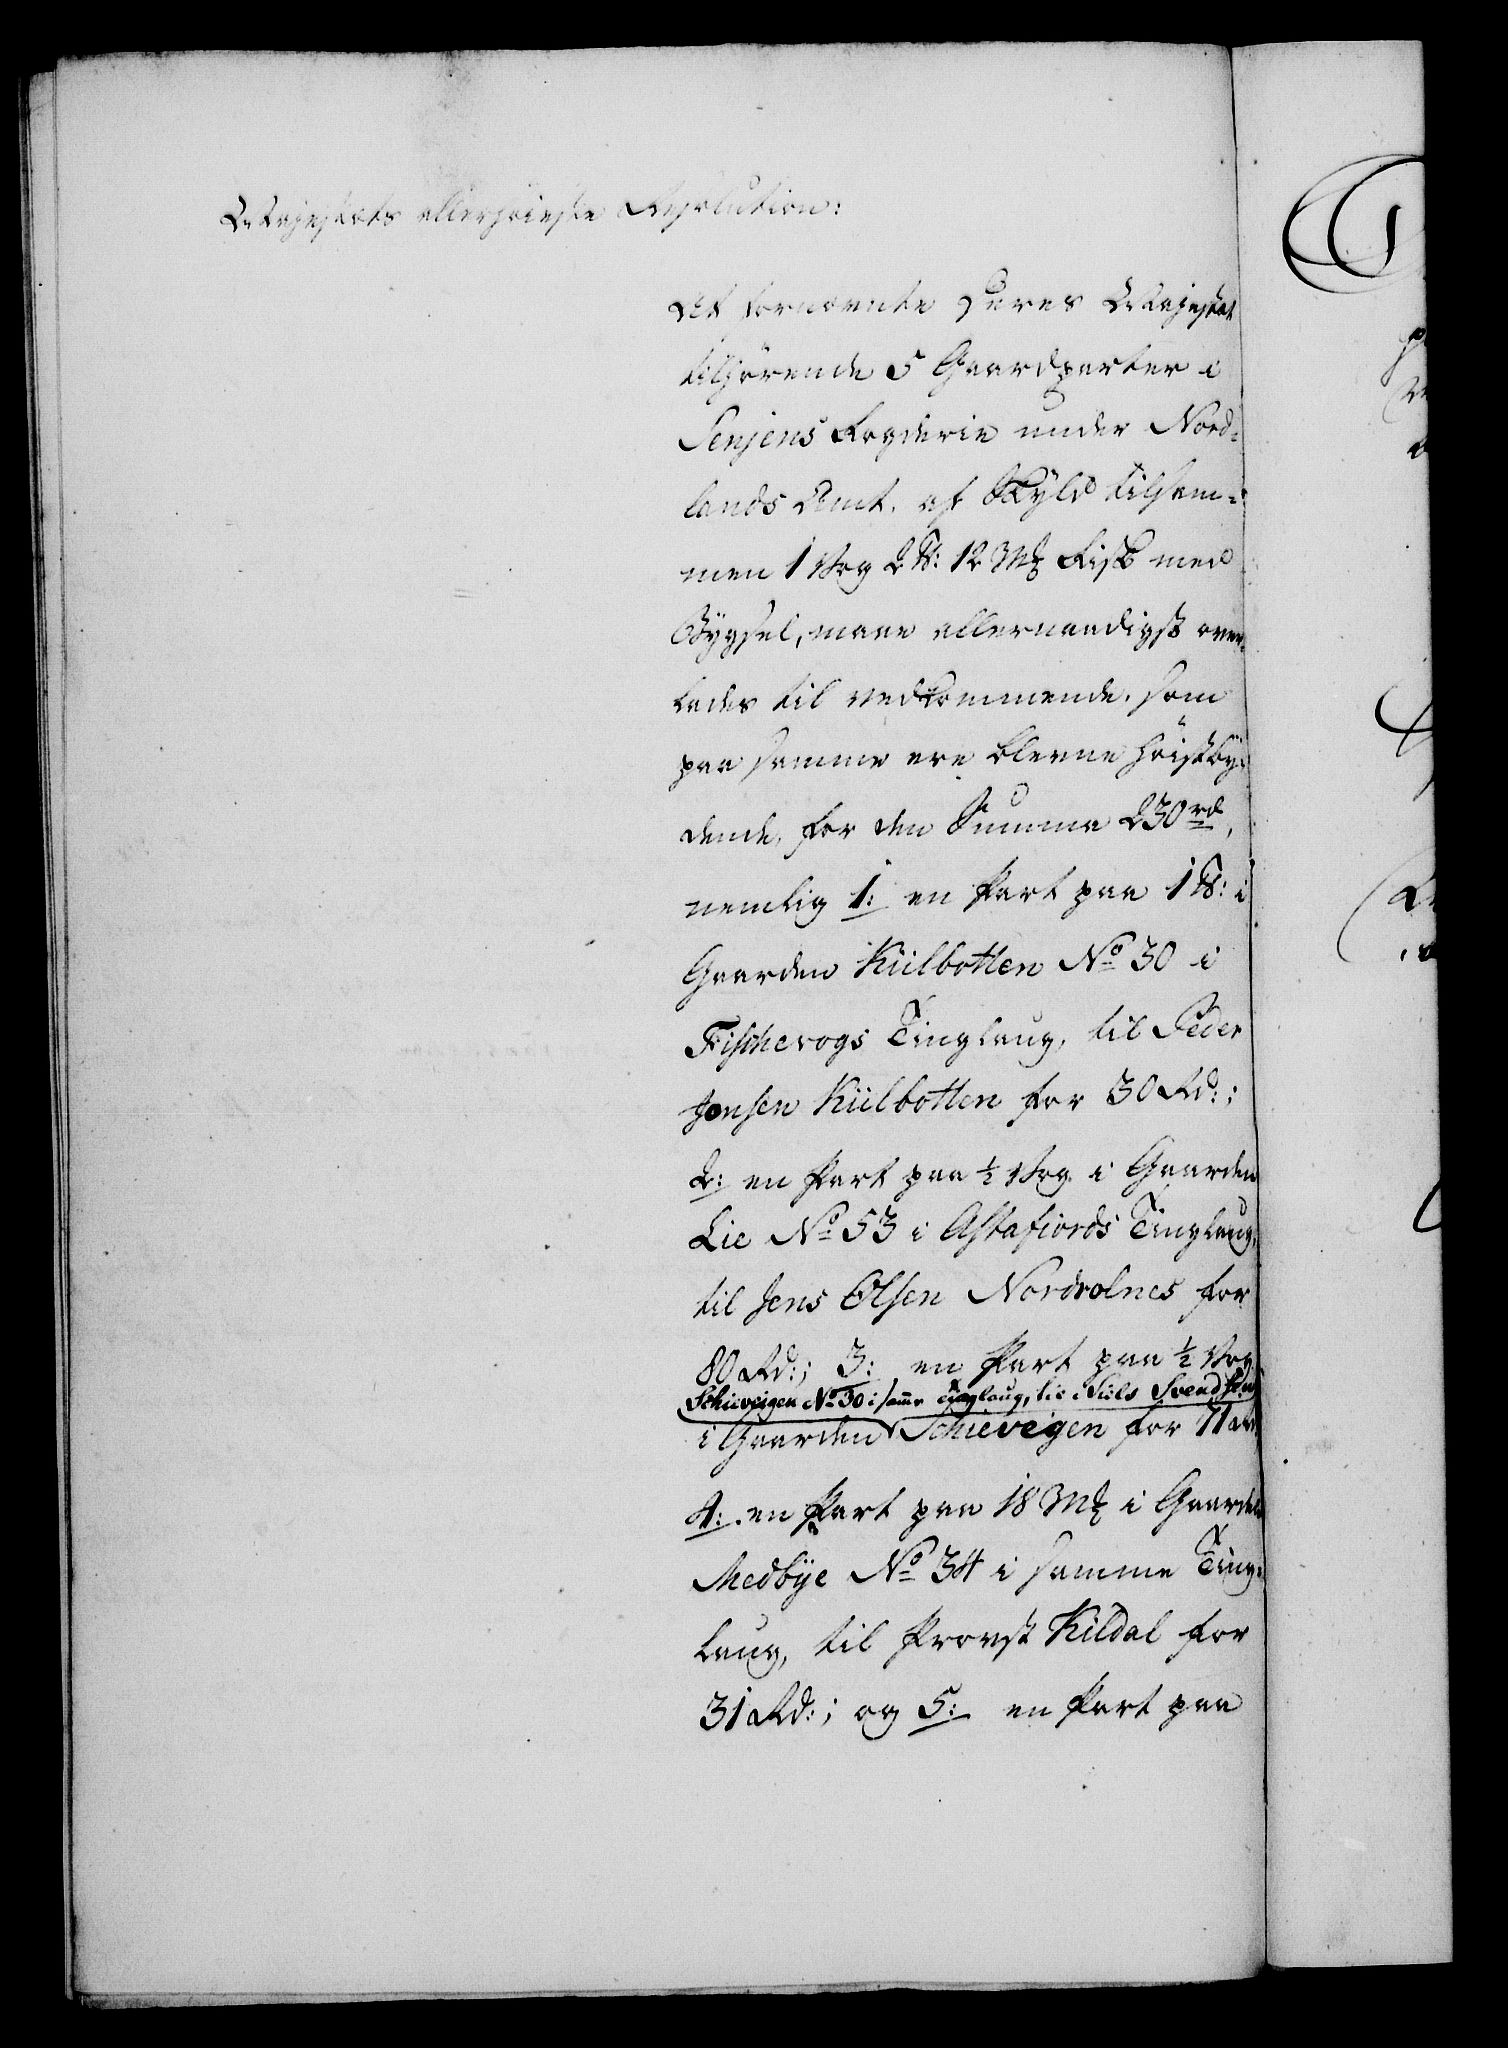 Majestæts allerhøieste Resolution:
At fornævnte Deres Majestæt
tilhørende 5 Gaardparter i
Senjens Fogderie under Nord-
lands Amt, af Skyld tilsam-
men 1 Vog 2 ℔: 12 Mk Fisk med
Bÿgsel, maae allernaadigst over-
lades til vedkommende, som
paa samme ere blevne høistbÿ-
dende, for den Summa 230 rd,
nemlig 1: en Part paa 1 ℔: i
Gaarden Kiilbotten No 30 i
Fischevogs Tinglaug, til Peder
Jonsen Kiilbotten for 30 Rd:;
2: en Part paa ½ Vog i Gaarden
Lie No 53 i Astafiords Tinglaug,
til Jens Olsen Nordrolnes for
80 Rd:; 3: en Part paa ½ Vog
Schieveigen No 30 i samme Tinglaug, til Niels Svendsen
i Gaarden Schievegen for 71 Rd
4: en Part paa 18 Mk i Gaarden
Medbÿe No 34 i samme Ting-
laug, til Provst Kildal for
31 Rd:; og 5: en Part paa